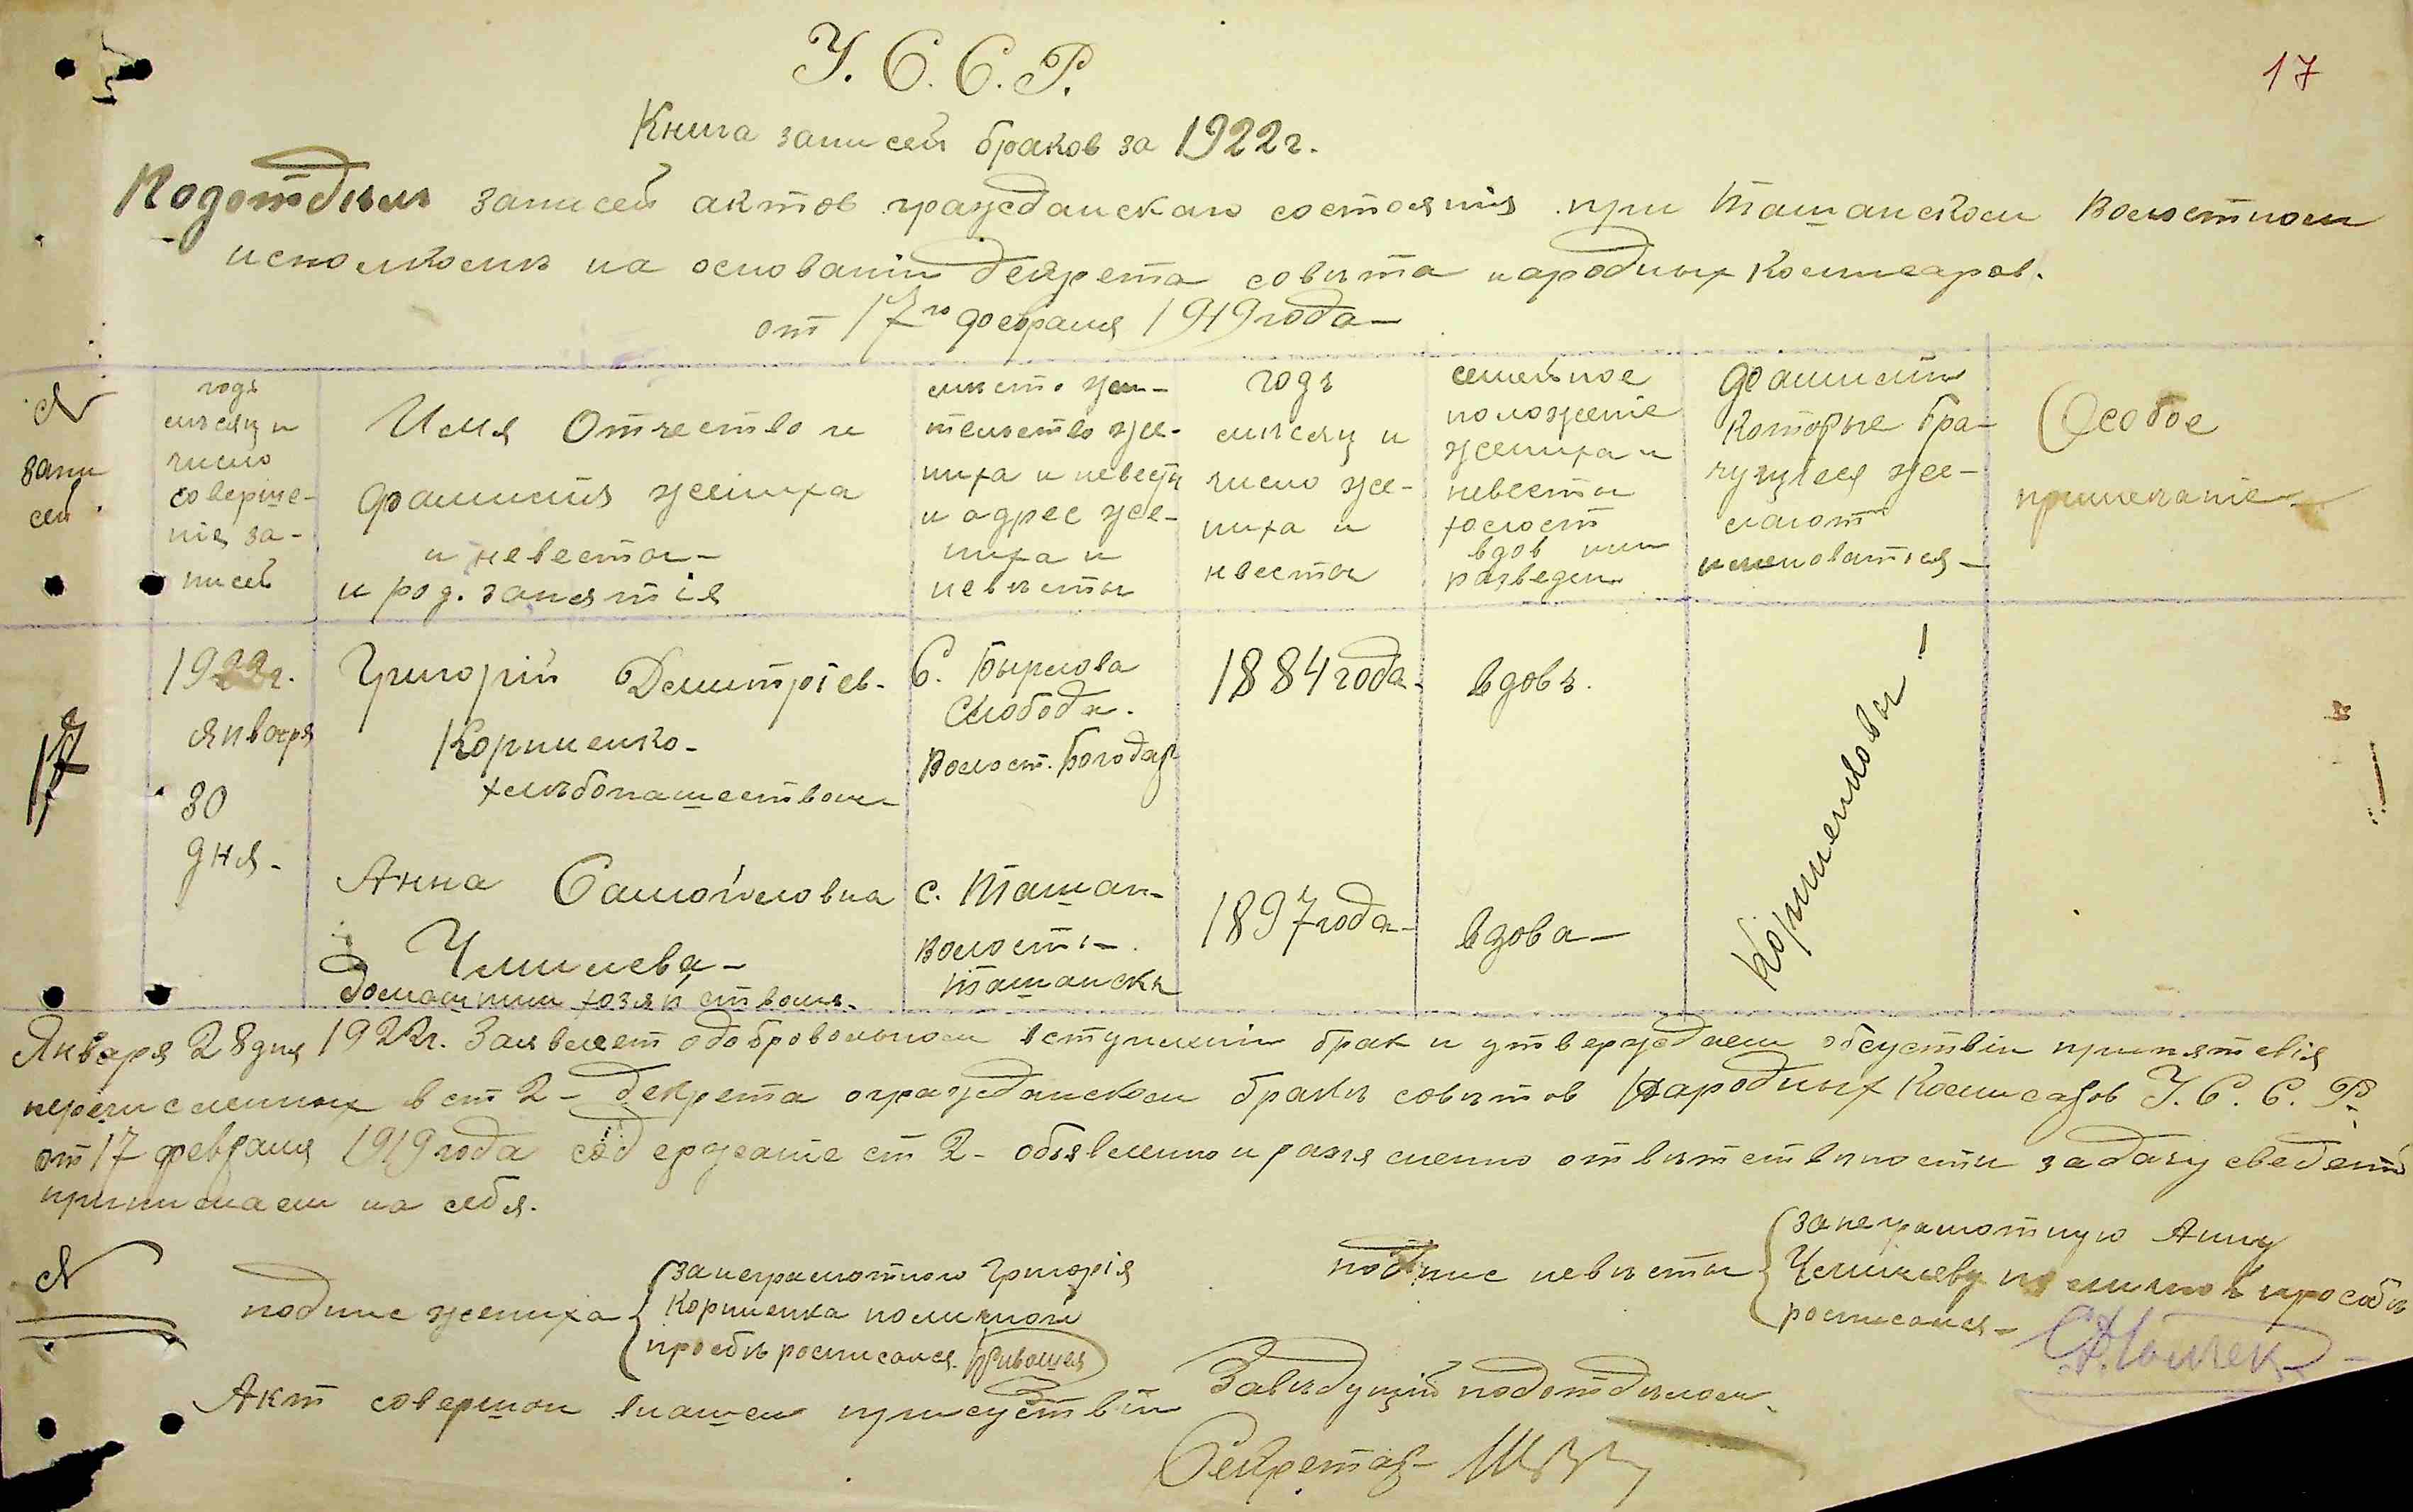 У. С. С. Р.
17
Книга записей браков за 1922г.
Подотдѣл записей актов гражданскаго состоянія при Ташанском Волостном
исполкомѣ на основаніи декрета совѣта народных комисаров.
от 17го февраля 1919 года
№
запи
сей
годъ
мѣсяц и
число
соверше-
нія за-
писей
Имя Отчество и
фамилия жениха
и невесты
и род. занятія
место жи-
тельство же-
ниха и невесты
и адрес же-
ниха и
невѣсты
годъ
мѣсяц и
число же-
ниха и
невесты
семейное
положеніе
жениха и
невесты
холост
вдов или
разведен
Фамилии
которые бра-
чущіеся же-
лают
именоватися
Особое
примечаніе
17
1922г.
января
30
дня
Григорій Демитріев.
Корниенко
хлѣбопашеством
С. Бырлова
Слобода.
Волост. Богодар
1884 года
вдовъ.
Анна Самойловна
домашним хозяйством.
с. Ташан
Волость
Ташанска
1897 года
вдова
Корниенковы
Января 28 дня 1922г. Заявляем о добровольном вступлении брак и утверждаем обсуствіи припятсвія
перечисленных в ст 2 декрета огражданском бракѣ совѣтов Народных Комисаров У. С. С. Р.
от 17 февраля 1919 года содержаніе ст 2 объявленно и разясненно отвѣтственности задачу сведений
принимаем на себя.
№
подпис жениха
за неграмотного Григорія
Корниенка поличной
прозбѣ росписался.
подпис невѣсты
за неграмотную Анну
по личной прозбѣ
росписался
Акт совершон внашем присуствіи
Завѣдущій подотдѣлом
Секретар